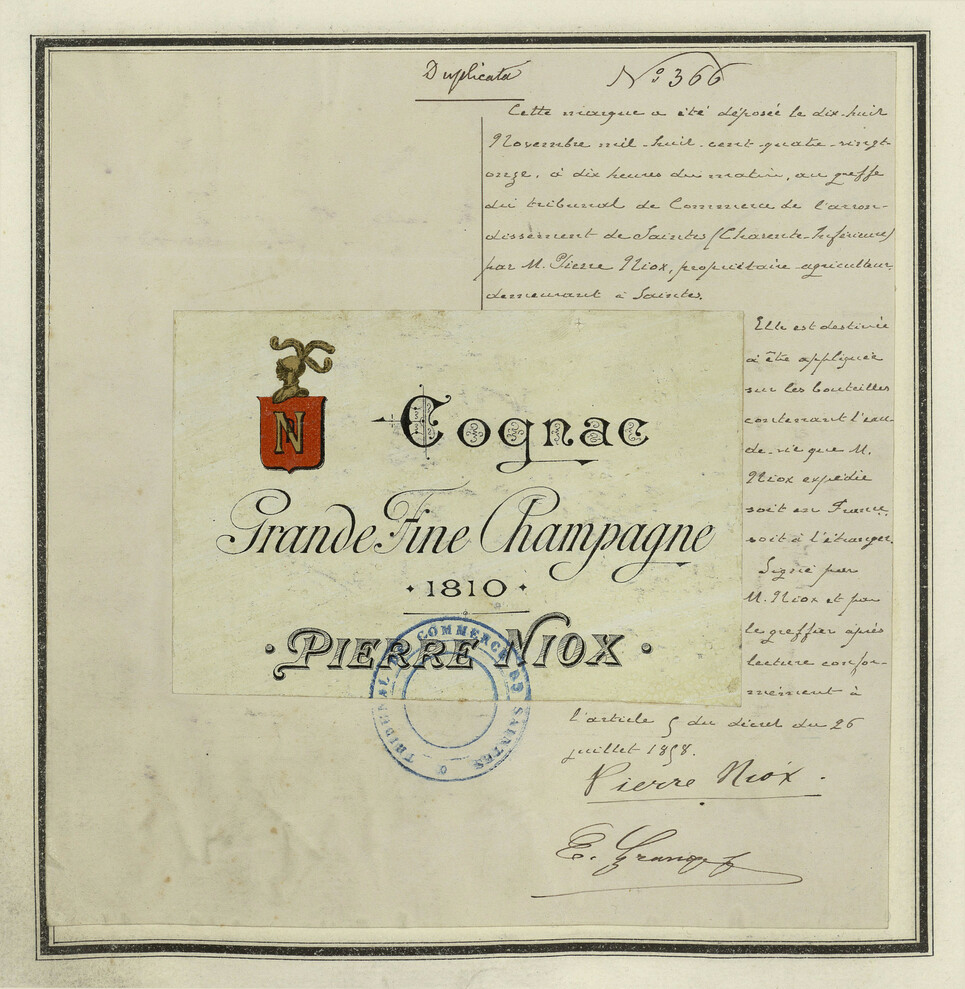 Duplicata
N° 366
Cette marque a été déposée le dix-huit
Novembre mil-huit-cent-quatre-vingt-
onze, à dix heures du matin, au greffe
du tribunal de Commerce de l'arron-
dissement de Saintes (Charente-Inférieure)
par M. Pierre Niox, propriétaire-agriculteur,
demeurant à Saintes.
Elle est destinée
à être appliquée
sur les bouteilles
contenant l'eau-
de-vie que M.
Niox expédie
soit en France,
soit à l'étranger.
Signé par
M. Niox et par
le greffier après
lecture confor-
mément à
l'article 5 du décret du 26
juillet 1858.
Pierre Niox.
N
Cognac
Grande Fine Champagne
1810
PIERRE NIOX
TRIBUNAL DE COMMERCE DE SAINTES